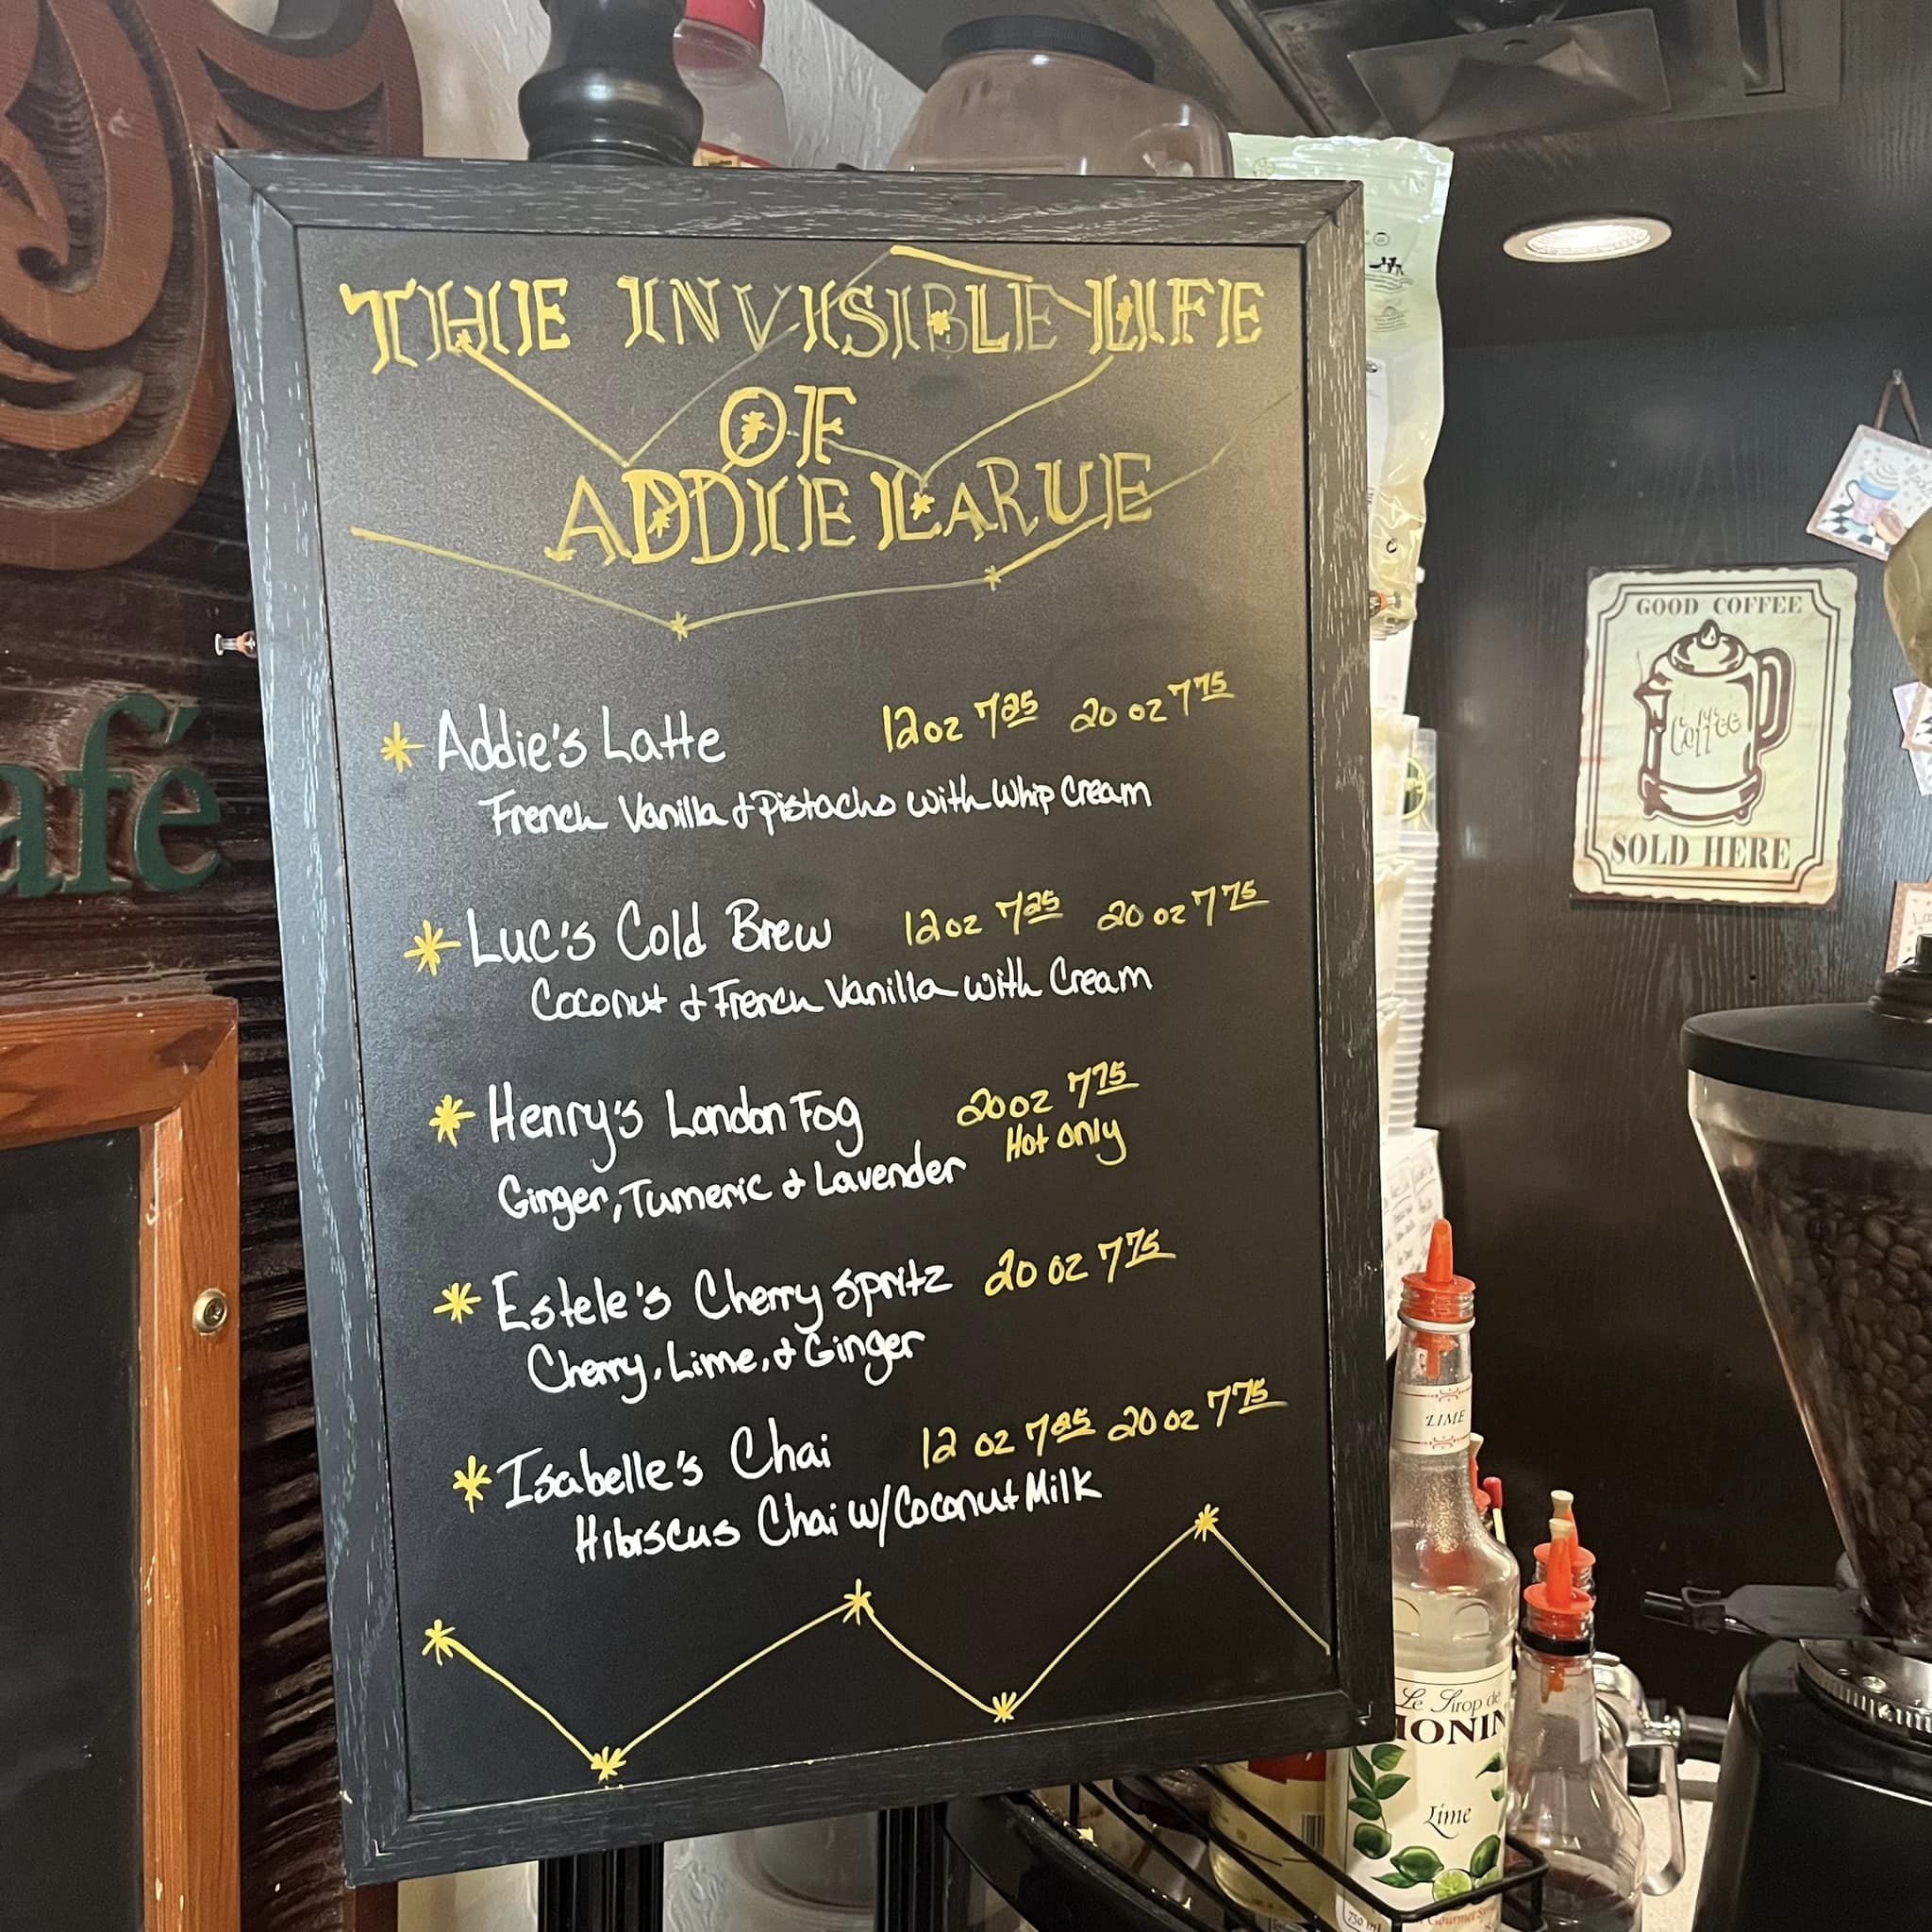 THE INVISIBLE LIFE
OF
ADDIE LARUE
Addie's Latte 12oz 7 25 20 oz 7 75
French Vanilla & Pistacho with Whip Cream
Luc's Cold Brew 12oz 7 25 20 oz 7 75
Coconut & French Vanilla with Cream
Henry's London Fog 20oz 7 75
Hot only
Ginger, Tumeric & Lavender
Estele's Cherry Spritz 20 oz 7 75
Cherry, Lime, & Ginger
Isabelle's Chai 12 oz 7 25 20 oz 7 75
Hibiscus Chai w/Coconut Milk
afé
GOOD COFFEE
Coffee
SOLD HERE
LIME
Le Sirop de
MONIN
Lime